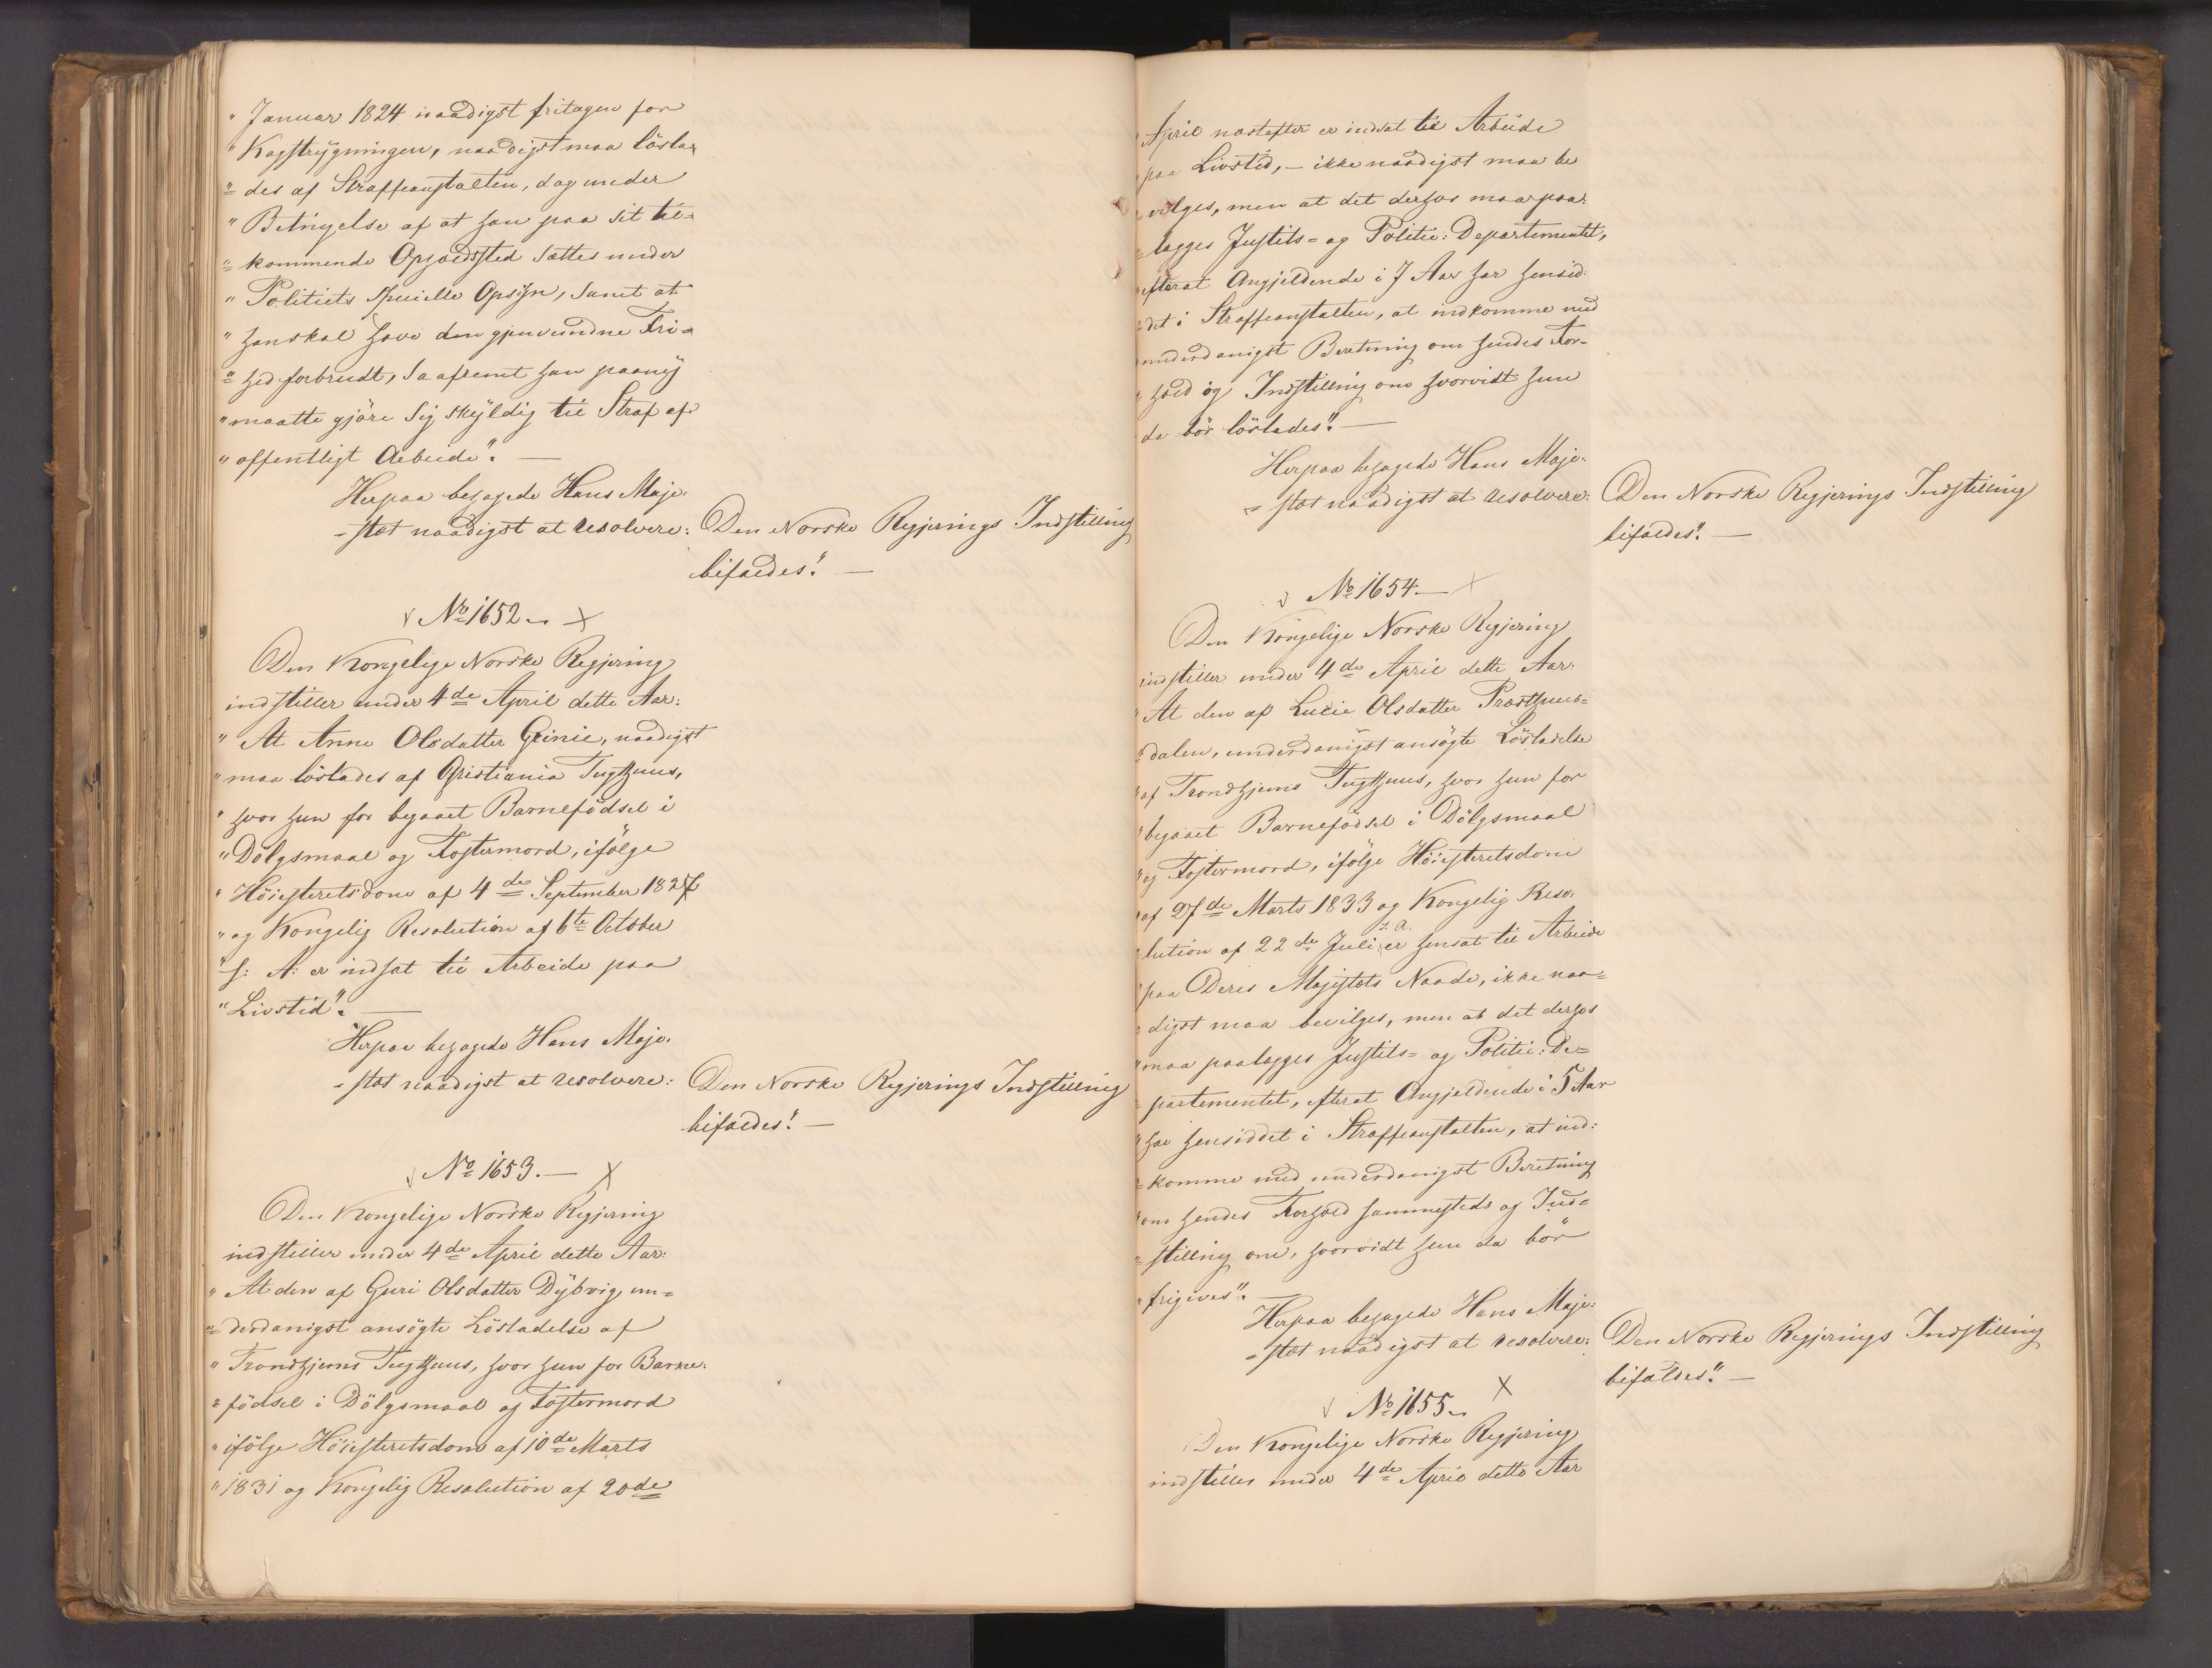 " Januar 1824 naadigst fritagen for
" Kagstrygningen, naadigst maa löslа
"= des af Straffeanstalten, dog under
" Betingelse af at han paa sit til-
"= kommende Opholdssted sættes under
" Politiets specielle Opsyn, samt at
" han skal have den gjenvundne Fri-
"= hed forbrudt, saafremt han paany
" maatte gjöre sig skyldig til Straf af
" offentligt Arbeide". —
Herpaa behagede Hans Maje-
-stæt naadigst at resolvere:
Den Norske Regjerings Indstilling
bifaldes". —
No 1652. X
Den Kongelige Norske Regjering
indstiller under 4de April dette Aar:
" At Anne Olsdatter Grinie, naadigst
" maa löslades af Christiania Tugthuus,
" hvor hun for begaaet Barnefödsel i
" Dölgsmaal og Fostermord, ifölge
" Höiesteretsdom af 4de September 1827
" og Kongelig Resolution af 6te October
" s: A: er indsat til Arbeide paa
" Livstid". —
Herpaa behagede Hans Maje-
-stæt naadigst at resolvere:
Den Norske Regjerings Indstilling
bifaldes". —
No 1653. — X
Den Kongelige Norske Regjering
indstiller under 4de April dette Aar:
" At den af Guri Olsdatter Dybvig un=
"= derdanigst ansögte Lösladelse af
" Trondhjems Tugthuus, hvor hun for Barne-
"= födsel i Dölgsmaal og Fostermord
" ifölge Höiesteretsdom af 10de Marts
" 1831 og Kongelig Resolution af 20de
" April næstefter er indsat til Arbeide
" paa Livstid, — ikke naadigst maa be
= vilges, men at det derhos maa paa-
= lægges Justits= og Politie: Departementet,
" efterat Angjeldende i 7 Aar har hensid-
= det i Straffeanstalten, at indkomme med
" underdanigst Beretning om hendes For-
= hold og Indstilling om hvorvidt hun
da bör löslades". —
Herpaa behagede Hans Maje-
= stæt naadigst at resolvere:
Den Norske Regjerings Indstilling
bifaldes". —
No 1654. — X
Den Kongelige Norske Regjering
indstiller under 4de April dette Aar:
" At den af Lucie Olsdatter Præsthuus=
= dalen, underdanigst ansögte Lösladelse
" af Trondhjems Tugthuus, hvor hun for
" begaaet Barnefödsel i Dölgsmaal
" og Fostermord, ifölge Höiesteretsdom
" af 27de Marts 1833 og Kongelig Reso-
s. A.
= lution af 22de Juli er hensat til Arbeide
" paa Deres Majestæts Naade, ikke naa=
= digst maa bevilges, men at det derhos
" maa paalægges Justits= og Politie: De=
= partementet, efterat Angjeldende i 5 Aar
" har hensiddet i Straffeanstalten, at ind:
= komme med underdanigst Beretning
" om hendes Forhold sammesteds og Ind=
= stilling om, hvorvidt hun da bör
" frigives". —
Herpaa behagede Hans Maje:
= stæt naadigst at resolvere:
Den Norske Regjerings Indstilling
bifaldes". —
No 1655. X
Den Kongelige Norske Regjering
indstiller under 4de April dette Aar